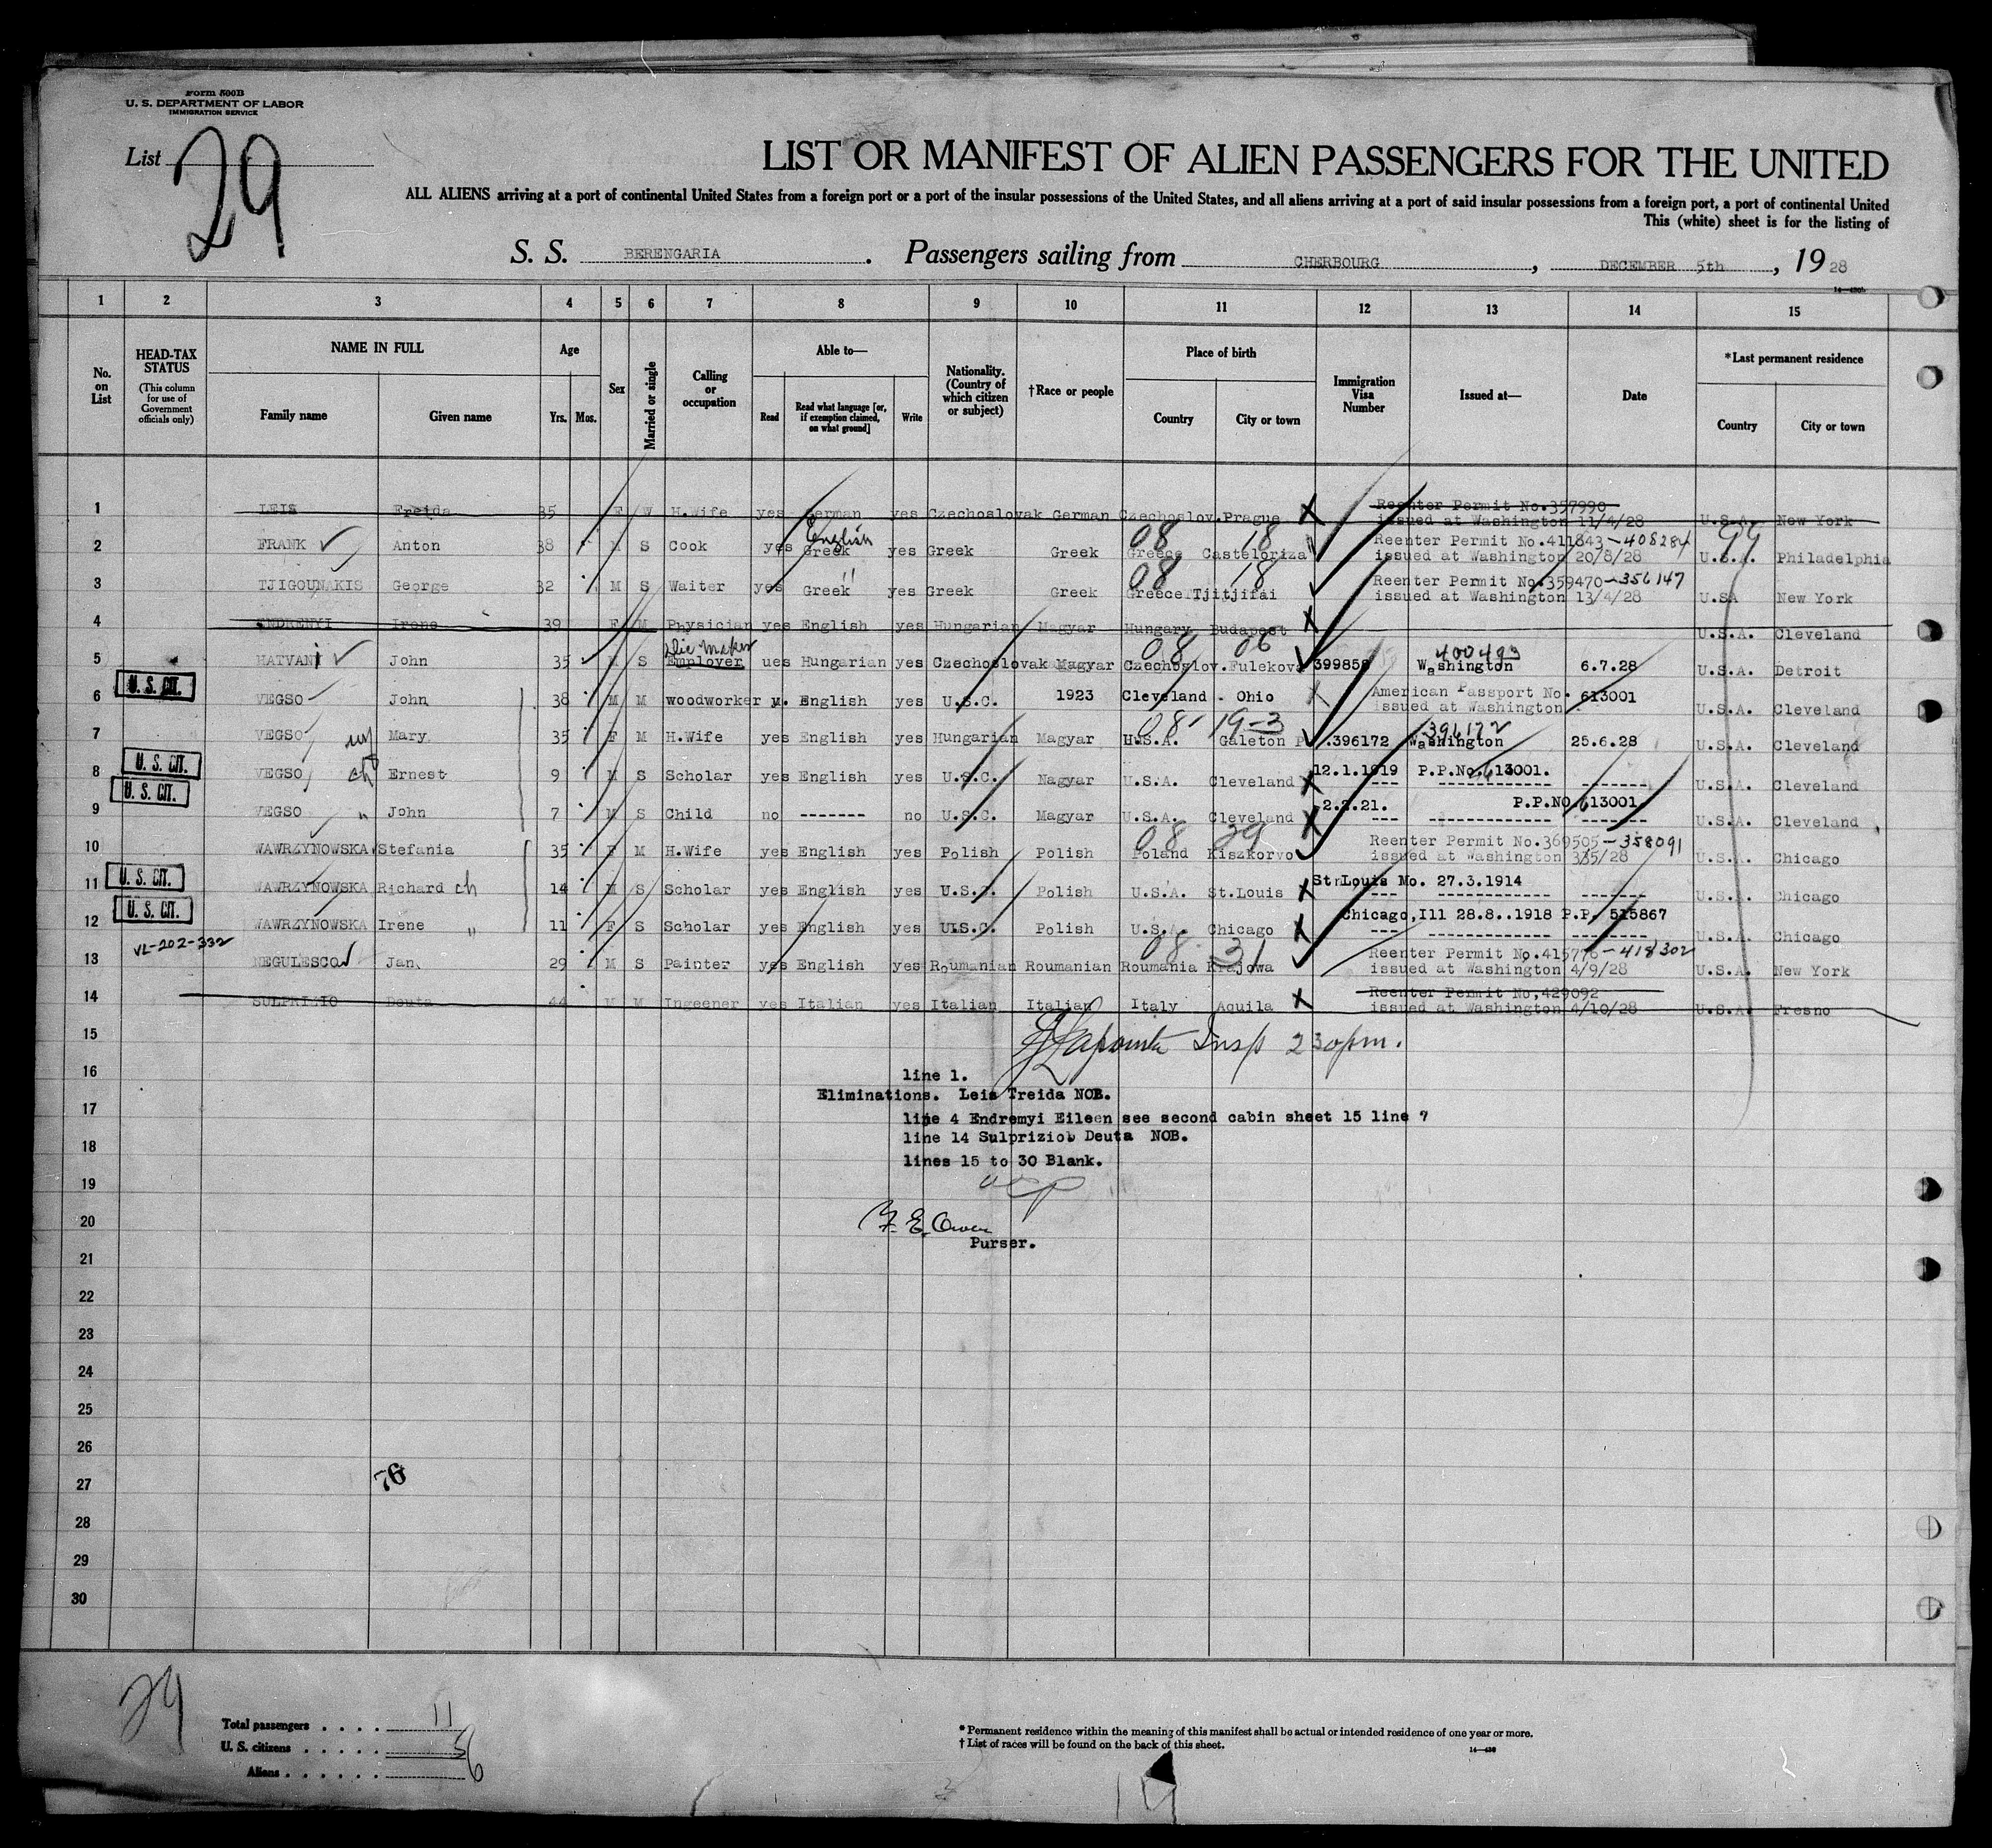 Form 500B
U. S. DEPARTMENT OF LABOR
IMMIGRATION SERVICE
List 29
LIST OR MANIFEST OF ALIEN PASSENGERS FOR THE UNITED
ALL ALIENS arriving at a port of continental United States from a foreign port or a port of the insular possessions of the United States, and all aliens arriving at a port of said insular possessions from a foreign port, a port of continental United
This (white) sheet is for the listing of
S. S. BERENGARIA. Passengers sailing from CHERBOURG, DECEMBER 5th, 1928
1 2 3 4 5 6 7 8 9 10 11 12 13 14 15
No. on List
HEAD-TAX STATUS
(This column for use of Government officials only)
NAME IN FULL
Family name Given name
Age
Yrs. Mos.
Sex
Married or single
Calling or occupation
Able to—
Read Read what language [or, if exemption claimed, on what ground] Write
Nationality. (Country of which citizen or subject)
†Race or people
Place of birth
Country City or town
Immigration Visa Number
Issued at—
Date
*Last permanent residence
Country City or town
1 LEIS Freida 35 F W H.Wife yes German yes Czechoslovak German Czechoslov. Prague X Reenter Permit No.357990 issued at Washington 11/4/28 U.S.A. New York
English 08 18
2 FRANK Anton 38 M S Cook yes Greek yes Greek Greek Greece Casteloriza Reenter Permit No.411843-408284 issued at Washington 20/8/28 U.S.A. Philadelphia
" 08 18
3 TJIGOUNAKIS George 32 M S Waiter yes Greek yes Greek Greek Greece Tjitjifai Reenter Permit No.359470-356147 issued at Washington 13/4/28 U.SA New York
4 ENDRENYI Irene 39 F M Physician yes English yes Hungarian Magyar Hungary Budapest X U.S.A. Cleveland
Die Maker 08 06 400493
5 HATVANi John 35 M S Employer ues Hungarian yes Czechoslovak Magyar Czechoslov. Fulekova 399858 Washington 6.7.28 U.S.A. Detroit
U. S. CIT.
6 VEGSO John 38 M M woodworker y. English yes U.S.C. 1923 Cleveland - Ohio X American Passport No. 613001 issued at Washington U.S.A. Cleveland
08- 19-3 396172
7 VEGSO wf Mary 35 F M H.Wife yes English yes Hungarian Magyar U.S.A. Galeton P .396172 Washington 25.6.28 U.S.A. Cleveland
U. S. CIT.
8 VEGSO ch Ernest 9 M S Scholar yes English yes U.S.C. Magyar U.S.A. Cleveland X 12.1.1919 P.P.No.613001. U.S.A. Cleveland
U. S. CIT.
9 VEGSO " John 7 M S Child no ------- no U.S.C. Magyar U.S.A. Cleveland X 2.2.21. P.P.NO 613001. U.S.A. Cleveland
08 29
10 WAWRZYNOWSKA Stefania 35 F M H.Wife yes English yes Polish Polish Poland Kiszkorvo Reenter Permit No.369505-358091 issued at Washington 335/28 U.S.A. Chicago
U. S. CIT.
11 WAWRZYNOWSKA Richard ch 14 M S Scholar yes English yes U.S.C. Polish U.S.A. St.Louis X St Louis Mo. 27.3.1914 U.S.A. Chicago
U. S. CIT.
12 WAWRZYNOWSKA Irene " 11 F S Scholar yes English yes U.S.C. Polish U.S.A. Chicago X Chicago,Ill 28.8..1918 P.P. 515867 U.S.A. Chicago
VL-202-332 08 31
13 NEGULESCO Jan 29 M S Painter yes English yes Roumanian Roumanian Roumania Krajowa Reenter Permit No.415776-418302 issued at Washington 4/9/28 U.S.A. New York
14 SULPRIZIO Deuta 44 M M Ingeener yes Italian yes Italian Italian Italy Aquila X Reenter Permit No,429092 issued at Washington 4/10/28 U.S.A. Fresno
15 Lapointe Insp 230pm.
16 line 1.
Eliminations. Leis Treida NOB.
17 line 4 Endremyi Eileen see second cabin sheet 15 line 7
line 14 Sulpriziob Deuta NOB.
18 lines 15 to 30 Blank.
19
20 F. E. Owen
Purser.
21
22
23
24
25
26
27 76
28
29
30
29
Total passengers . . . . 11
U. S. citizens . . . . . 5
Aliens . . . . . . 6
* Permanent residence within the meaning of this manifest shall be actual or intended residence of one year or more.
† List of races will be found on the back of this sheet.